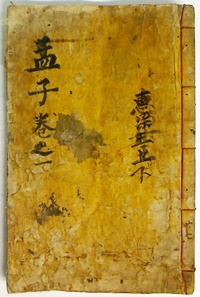 孟子卷之一
惠梁王上下